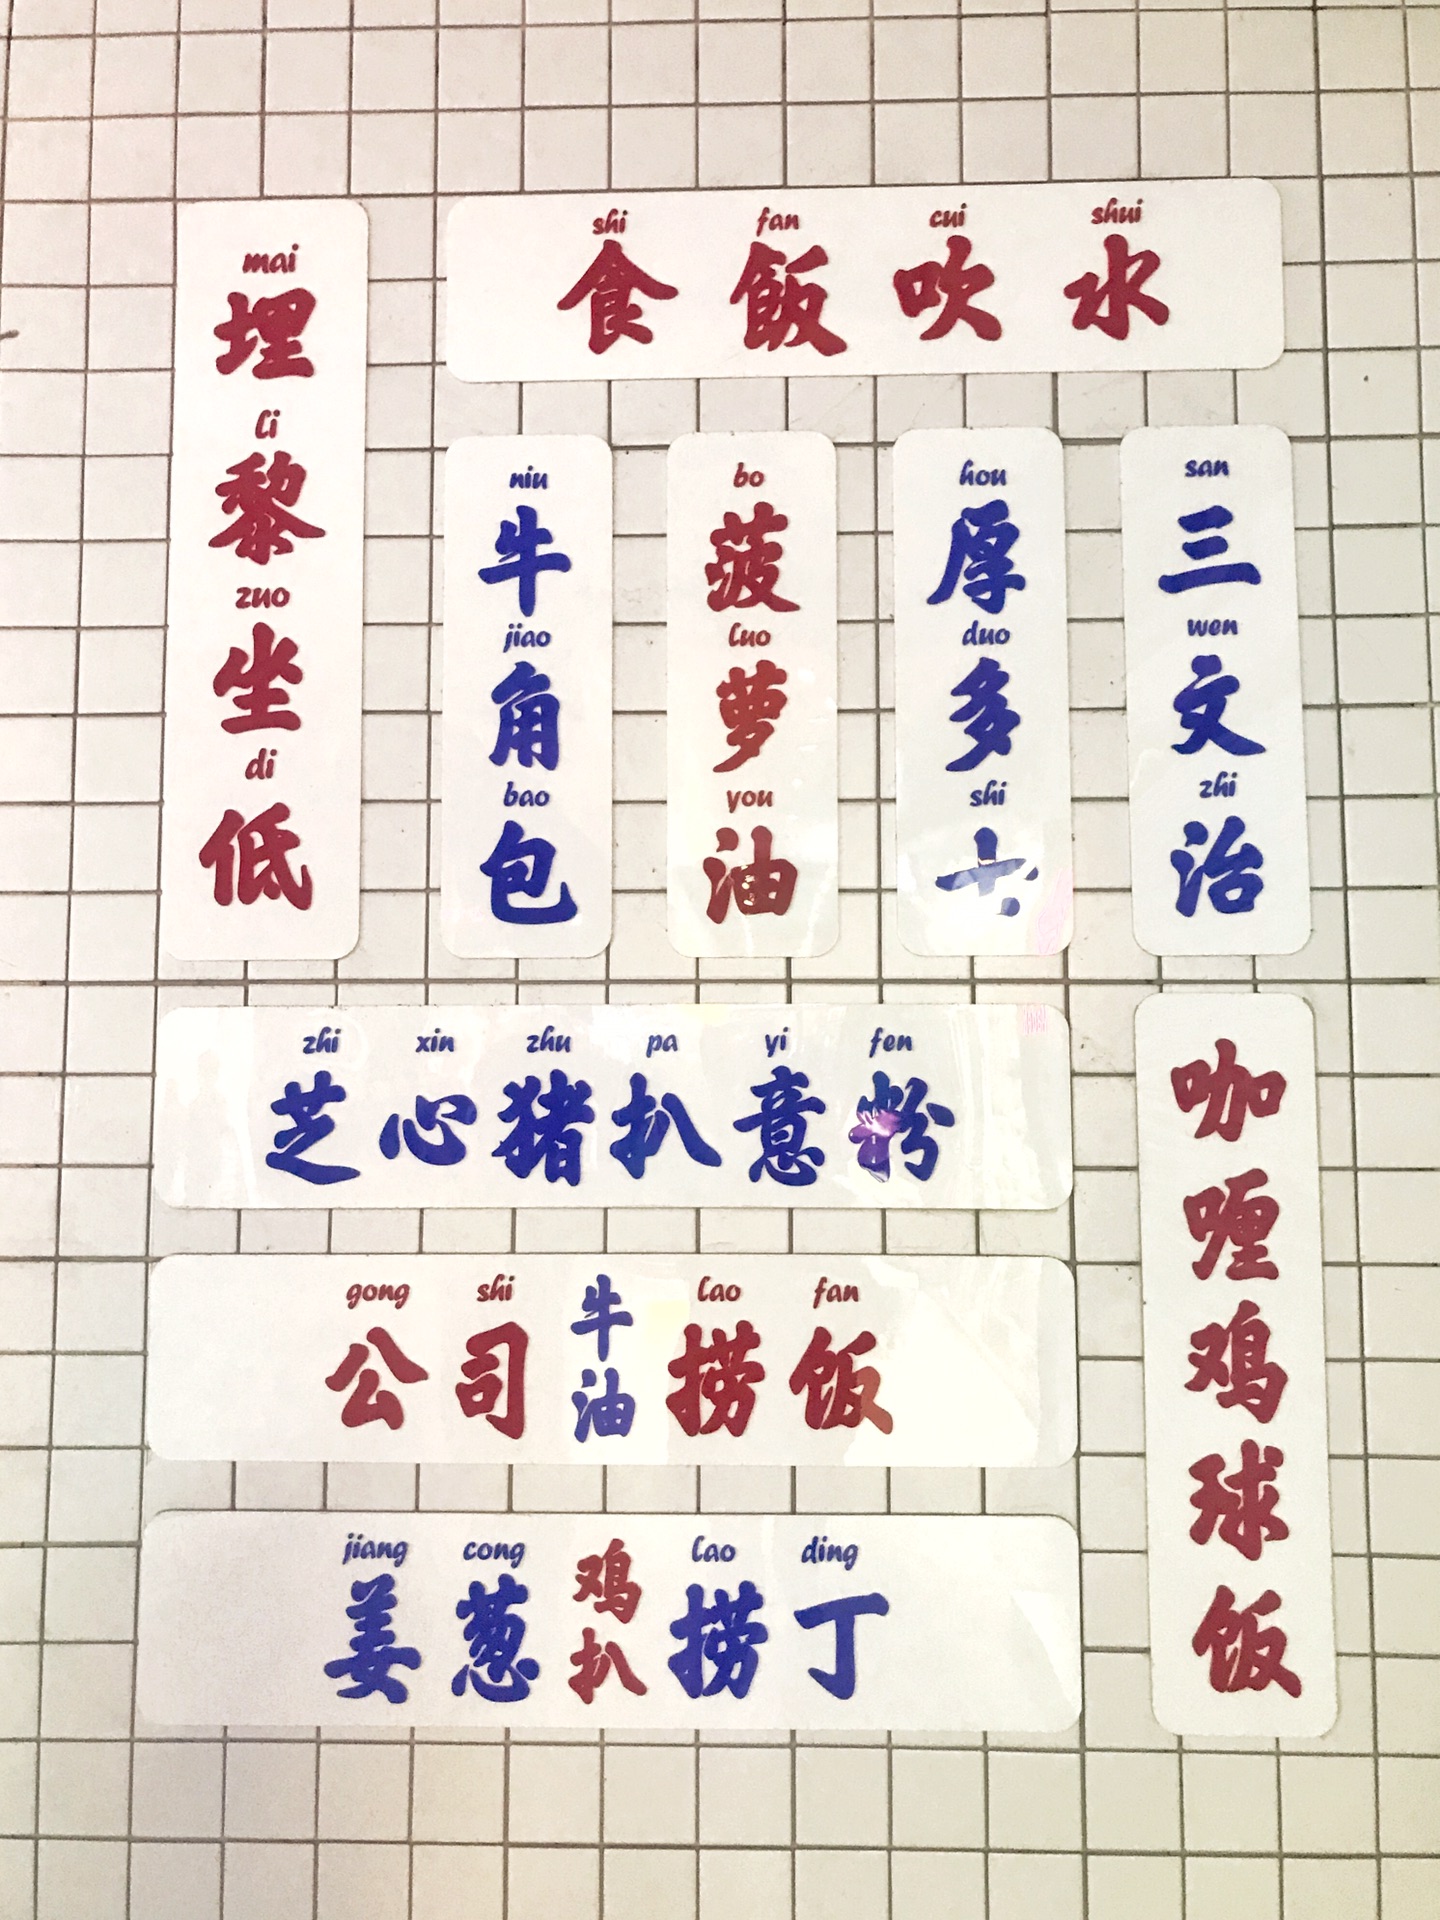 mai li zuo di
埋黎坐低
shi fan cui shui
食飯吹水
niu jiao bao
牛角包
bo luo you
菠萝油
hou duo shi
厚多士
san wen zhi
三文治
zhi xin zhu pa yi fen
芝心猪扒意粉
gong shi lao fan
公司牛油捞饭
jiang cong lao ding
姜葱鸡扒捞丁
咖喱鸡球饭